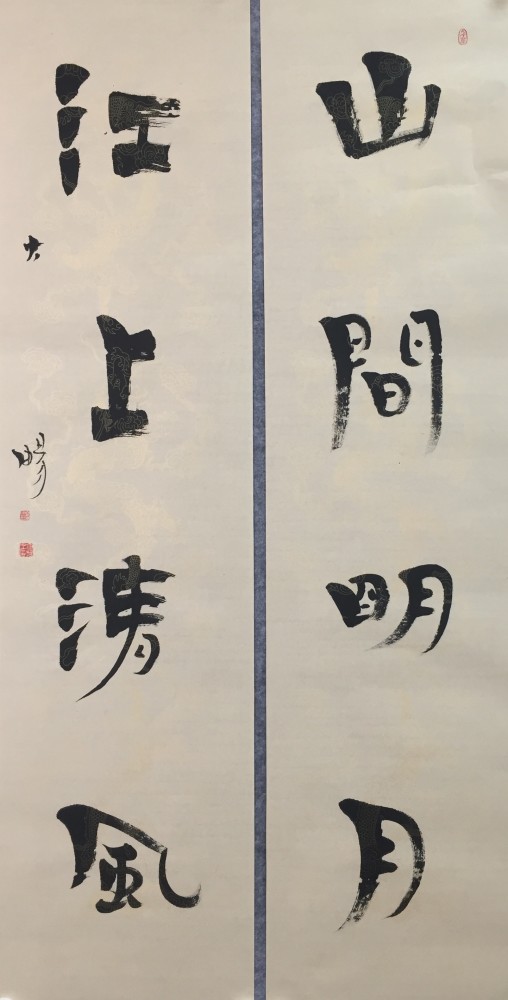 山間明月
江上清風